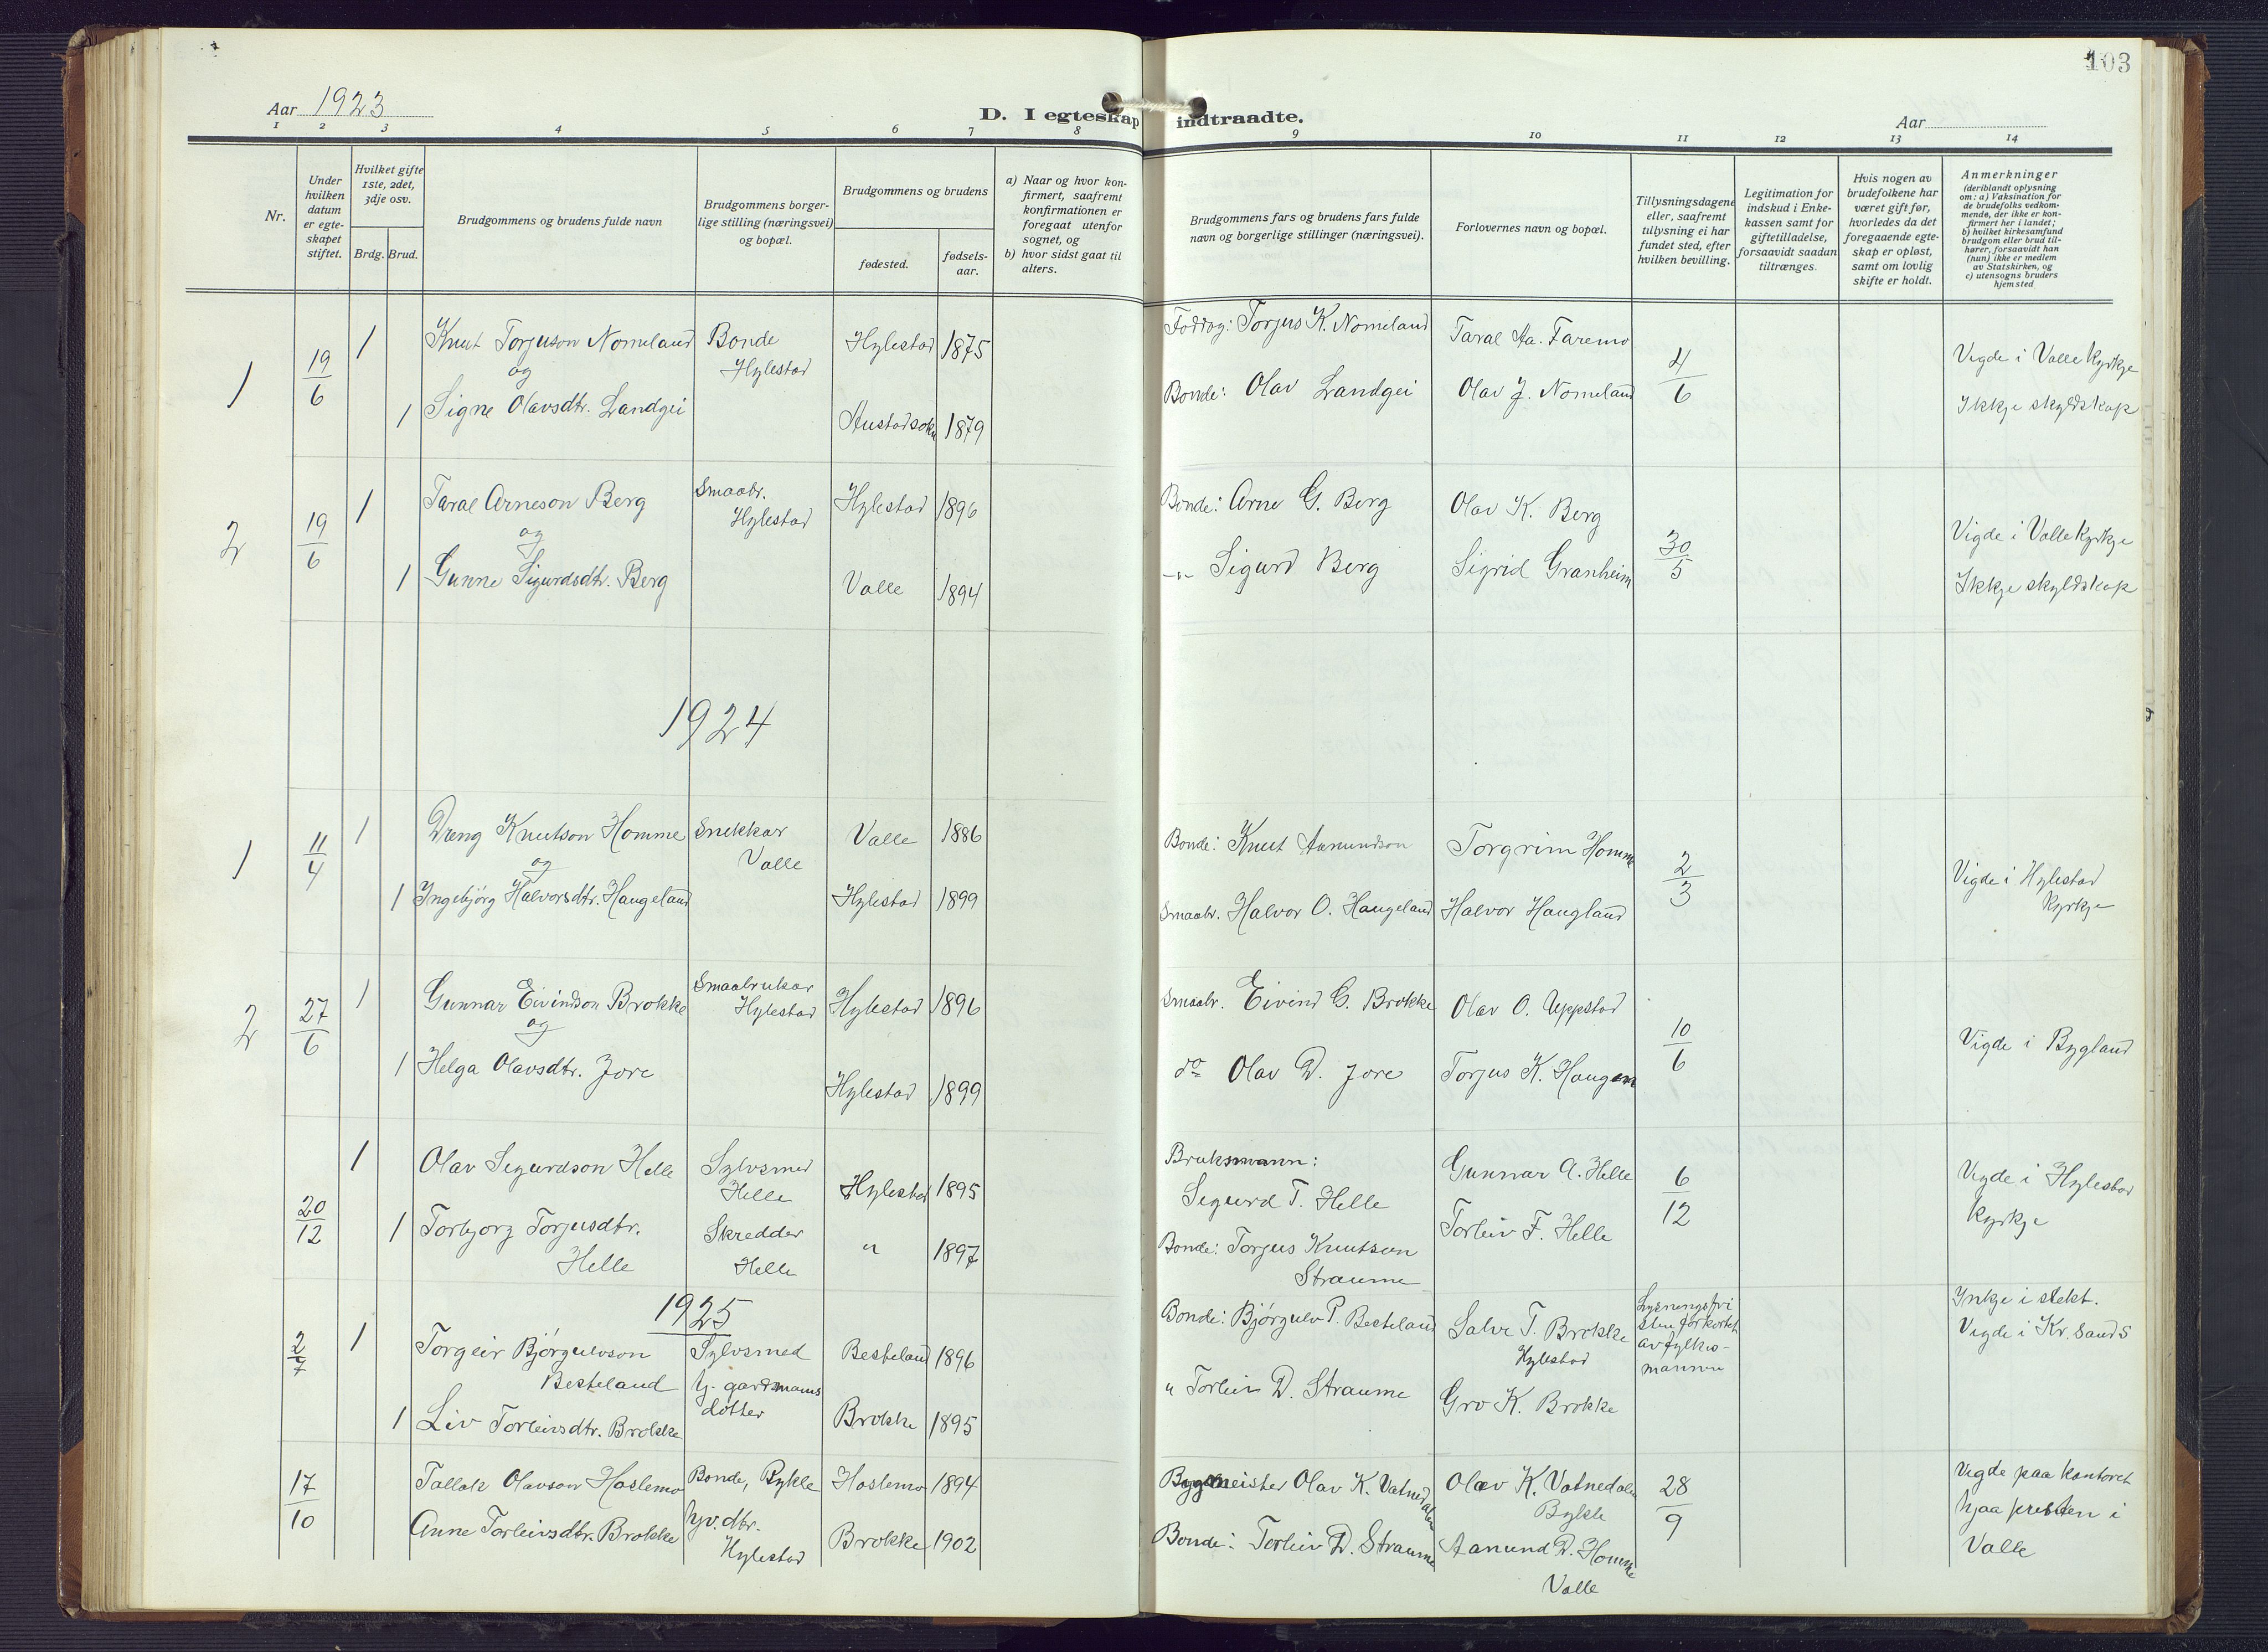 103
Aar 1923
D. I egteskap indtraadte.
Aar
1 2 3 4 5 6 7 8 9 10 11 12 13 14
Nr.
Under hvilken datum er egteskapet stiftet.
Hvilket gifte 1ste, 2det, 3dje osv.
Brdg. Brud.
Brudgommens og brudens fulde navn
Brudgommens borgerlige stilling (næringsvei) og bopæl.
Brudgommens og brudens
fødested.
fødselsaar.
a) Naar og hvor konfirmert, saafremt konfirmationen er foregaat utenfor sognet, og
b) hvor sidst gaat til alters.
Brudgommens fars og brudens fars fulde navn og borgerlige stillinger (næringsvei).
Forlovernes navn og bopæl.
Tillysningsdagene eller, saafremt tillysning ei har fundet sted, efter hvilken bevilling.
Legitimation for indskud i Enkekassen samt for giftetilladelse, forsaavidt saadan tiltrænges.
Hvis nogen av brudefolkene har været gift før, hvorledes da det foregaaende egteskap er opløst, samt om lovlig skifte er holdt.
Anmerkninger
(deriblandt oplysning om: a) Vaksination for de brudefolks vedkommende, der ikke er konfirmert her i landet; b) hvilket kirkesamfund brudgom eller brud tilhører, forsaavidt han (hun) ikke er medlem av Statskirken, og c) utensogns bruders hjemsted
1 19/6 1 Knut Torjuson Nomeland Bonde Hylestad Hylestad 1875 Torjus K. Nomeland Taral Aa. Faremo 4/6 Vigde i Valle kyrkje
og
1 Signe Olavsdtr. Landgei Austadsokn 1879 Bonde: Olav Landgei Olav J. Nomeland Ikkje skyldskap
2 19/6 1 Taral Arneson Berg Smaabr. Hylestad Hylestad 1896 Bonde: Arne G. Berg Olav K. Berg 30/5 Vigde i Valle kyrkje
og
1 Gunne Sigurdsdtr. Berg Valle 1894 -"- Sigurd Berg Sigrid Granheim Ikkje skyldskap
1924
1 11/4 1 Dreng Knutson Homme Snikkar Valle Valle 1886 Bonde: Knut Aamundson Torgrim Homme 2/3 Vigde i Hylestad kyrkje
og
1 Ingebjörg Halvorsdtr. Haugeland Hylestad 1899 Smaabr. Halvor O. Haugeland Halvor Haugland
2 27/6 1 Gunnar Eivindson Brokke Smaabrukar Hylestad Hylestad 1896 Smaabr. Eivind G. Brokke Olav O. Uppstad 10/6 Vigde i Bygland
og
1 Helga Olavsdtr. Jore Hylestad 1899 do Olav D. Jore Torjus K. Haugen
20/12 1 Olav Sigurdson Helle Sylvsmed Helle Hylestad 1895 Bruksmann: Sigurd T. Helle Gunnar A. Helle 6/12 Vigde i Hylestad kyrkje
1 Torbjorg Torjusdtr. Helle Skredder Helle " 1897 Bonde: Torjus Knutson Straume Torleiv F. Helle
1925
2/7 1 Torgeir Bjórgulvson Besteland Sylvsmed Besteland 1896 Bonde: Bjórgulv P. Besteland Salve T. Brokke Hylestad Lysningsfristen forkortet av fylkesmannen Inkje i slekt. Vigde i Kr.sand S
1 Liv Torleivsdtr. Brokke gardmanns dotter Brokke 1895 " Torleiv D. Straume Gro K. Brokke
17/10 Tallak Olavson Hoslemo Bonde, Bykle Hoslemo 1894 Bygmeister Olav K. Vatnedalen Olav K. Vatnedalen Bykle 28/9 Vigde paa kontoret hjaa presten i Valle
Anne Torleivsdtr. Brokke hjv. dtr. Hylestad Brokke 1902 Bonde: Torleiv D. Straume Aanund D. Homme Valle